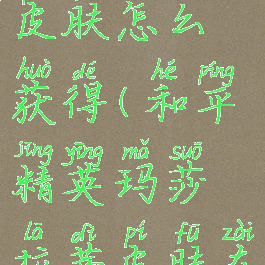 皮肤怎么
huò dé hé píng
获得(和平
jīng yīng mǎ suō
精英玛莎
lā dì pí fū zài